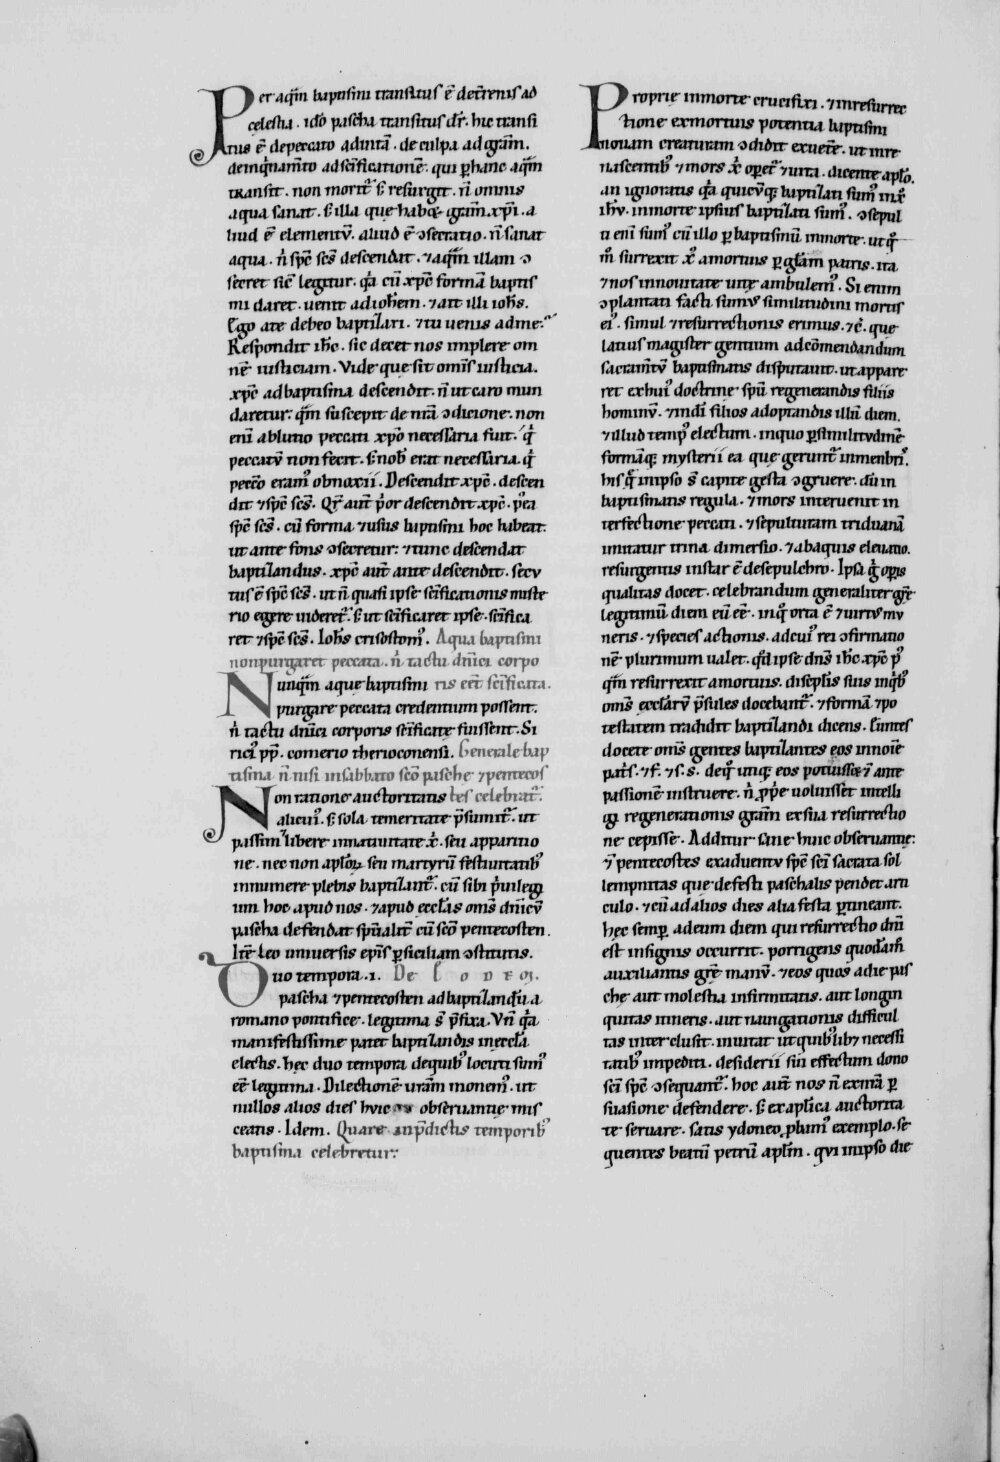 Per aq̄m baptismi transitus ē de tr̄enis ad
celestia . ido pascha transitus dr̄ . hic transi
tus ē de peccato ad uitā . de culpa ad gr̄am .
de inq̇nam̄to ad sc̄ificationē . qui ꝑ hanc aq̄m
transit . non morit᷑ . s; resurgit . n̄ omnis
aqua sanat . s; illa que habꝫ gr̄am xp̄i . a
liud ē elementū . aliud ē ↄsecratio . n̄ sanat
aqua . n̄ sp̄c sc̄s descendit . ⁊ aq̄m illam ↄ
secret sic̄ legitur . q̇a cū xp̄c formā baptis
mi daret . uenit ad ioh̄em . ⁊ ait illi ioh̄s .
Ego a te debeo baptizari . ⁊ tu uenis ad me .
Respondit ih̄c . sic decet nos implere om
nē iusticiam . Vide que sit om̄s iusticia .
xp̄c ad baptisma descendit . n̄ ut caro mun
daretur . q̄m suscepit de nr̄a ↄdicione . non
eni ablutio peccati xp̄o necessaria fuit . q̇
peccatū non fecit . s; nob̕ erat necessaria . q̇
pecc̄o eram᷒ obnoxii . Descendit xp̄c . descen
dit ⁊ sp̄c sc̄s . Qr̄ aut̄ ṗor descendit xp̄c . p̕ea
sp̄c sc̄s . cū forma ⁊ usus baptismi hoc habeat .
ut ante fons ↄsecretur . ⁊ tunc descendat
baptizandus . xp̄c aut̄ ante descendit . secu
tus ē sp̄c sc̄s . ut n̄ quasi ipse sc̄ificationis miste
rio egere uideret᷑ . s; ut sc̄ificaret ipse . sc̄ifica
ret ⁊ sp̄c sc̄s . Ioh̄s crisostom᷒ . Aqua baptismi
non purgaret peccata . n̄ tactu dn̄ici corpo
Nunq̄m aque baptismi ris eēt sc̄ificata .
purgare peccata credentium possent .
n̄ tactu dn̄ici corporis sc̄ificate fuissent . Si
rici᷒ pp̄ . comerio therioconensi . Generale bap
tisma n̄ nisi in sabbato sc̄o pasche ⁊ pentecos
Non ratione auctoritatis tes celebrat᷑ .
alicui᷒ . s; sola temeritate p̄sumit᷑ . ut
passim libere in natiuitate x̄ . seu apparitio
ne . nec non aplōꝝ seu martyrū festiuitatib᷒
innumere plebis baptizant᷑ . cū sibi ṗuilegi
um hoc apud nos . ⁊ apud eccl̄as om̄s dn̄icū
pascha defendat sp̄ualit̄ cū sc̄o pentecosten .
It̄e Leo uniuersis ep̄is ꝑ siciliam ↄstitutis .
Duo tempora . i . De eodem .
pascha ⁊ pentecosten ad baptizandū a
romano pontifice . legitima s̄ p̄fixa . Vn̄ q̇a
manifestissime patet baptizandis in eccl̄a
electis . hec duo tempora de quib᷒ locuti sum᷒
eē legitima . Dilectionē uram monem᷒ . ut
nullos alios dies huic observantie mis
ceatis . Idem . Quare in p̄dictis temporib᷒
baptisma celebretur .
Proprie in morte crucifixi . ⁊ in resurrec
tione ex mortuis potentia baptismi
nouam creaturam ↄdidit ex uet̄e . ut in re
nascentib᷒ ⁊ mors x̄ oꝑet᷑ ⁊ uita . dicente aplo .
an ignoratis q̇a quicūqꝫ baptizati sum᷒ in x̄
ih̄u . in morte ipsius baptizati sum᷒ . ↄsepul
ti eni sum᷒ cū illo ꝑ baptismū in morte . ut q̄
m̄ surrexit x̄ a mortuis ꝑ gl̄am patris . ita
⁊ nos in nouitate uite ambulem᷒ . Si enim
ↄplantati facti sumus similitudini mortis
ei᷒ . simul ⁊ resurrectionis erimus . ⁊ c̄ . que
latius magister gentium ad cōmendandum
sacram̄tū baptismatis disputauit . ut appare
ret ex hui᷒ doctrine sp̄u regenerandis filiis
hominū . ⁊ in dī filios adoptandis illū diem .
⁊ illud temp᷒ electum . in quo ꝑ similitudinē
formāqꝫ mysterii ea que gerunt᷑ in menbri᷒ .
his q̇ in ipso s̄ capite gesta ↄgruere . dū in
baptismatis regula . ⁊ mors interuenit in
terfectione peccati . ⁊ sepulturam triduanā
imitatur trina dimersio . ⁊ ab aquis eleuatio .
resurgentis instar ē de sepulchro . Ipsa g̊ oꝑis
qualitas docet . celebrandum generaliter gr̄e
legitimū diem eū eē . in q̊ orta ē ⁊ uirtus mu
neris . ⁊ species actionis . ad cui᷒ rei ↄfirmatio
nē plurimum ualet . q̄d ipse dn̄s ih̄c xp̄c p᷒
q̄m resurrexit a mortuis . discip̄lis suis in q̇b᷒
om̄s eccl̄arū p̄sules docebant᷑ . ⁊ formā ⁊ po
testatem tradidit baptizandi dicens . Euntes
docete om̄s gentes baptizantes eos in noīe
pat̄s . ⁊ f . ⁊ s . s . de q̊ utiqꝫ eos potuisset ante
passionē instruere . n̄ ꝓp̄e uoluisset intelli
gi regenerationis gr̄am ex sua resurrectio
ne cepisse . Additur sane huic observantie
⁊ pentecostes ex aduentu sp̄c sc̄i sacrata sol
lempnitas que de festi paschalis pendet arti
culo . ⁊ cū ad alios dies alia festa ꝑtineant .
hec semꝑ ad eum diem qui resurrectio dn̄i
est insignis occurrit . porrigens quodam̄
auxiliantis gr̄e manū . ⁊ eos quos a die pas
che aut molestia infirmitatis . aut longin
quitas itineris . aut nauigationis difficul
tas interclusit . inuitat ut quib᷒ libꝫ necessi
tatib᷒ impediti . desiderii sui effectum dono
sc̄i sp̄c ↄsequant᷑ . hoc aut̄ nos n̄ ex nr̄a ꝑ
suasione defendere . s; ex aplica auctorita
te seruare . satis ydoneo ꝓbam᷒ exemplo . se
quentes beatū petrū aplm̄ . qui in ipso die